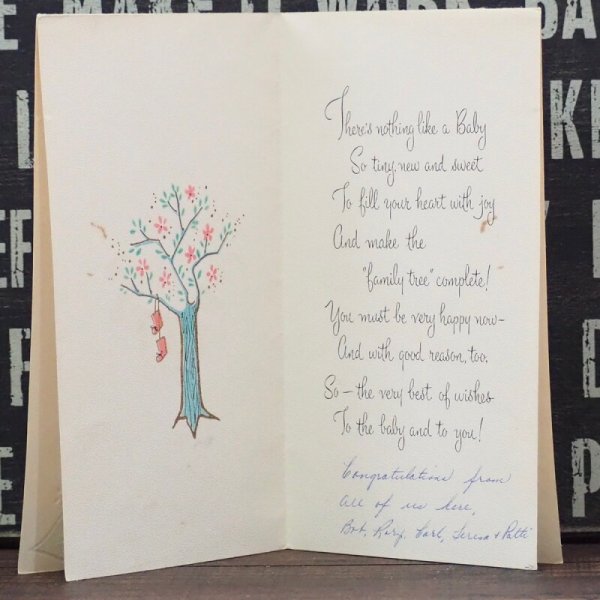 E MAKE IT WORK
There's nothing like a Baby
So tiny, new and sweet
To fill your heart with joy
And make the
"family tree" complete!
You must be very happy now—
And with good reason, too.
So — the very best of wishes
To the baby and to you!
Congratulations from
all of us here,
Bob, Carl, Teresa & Patti